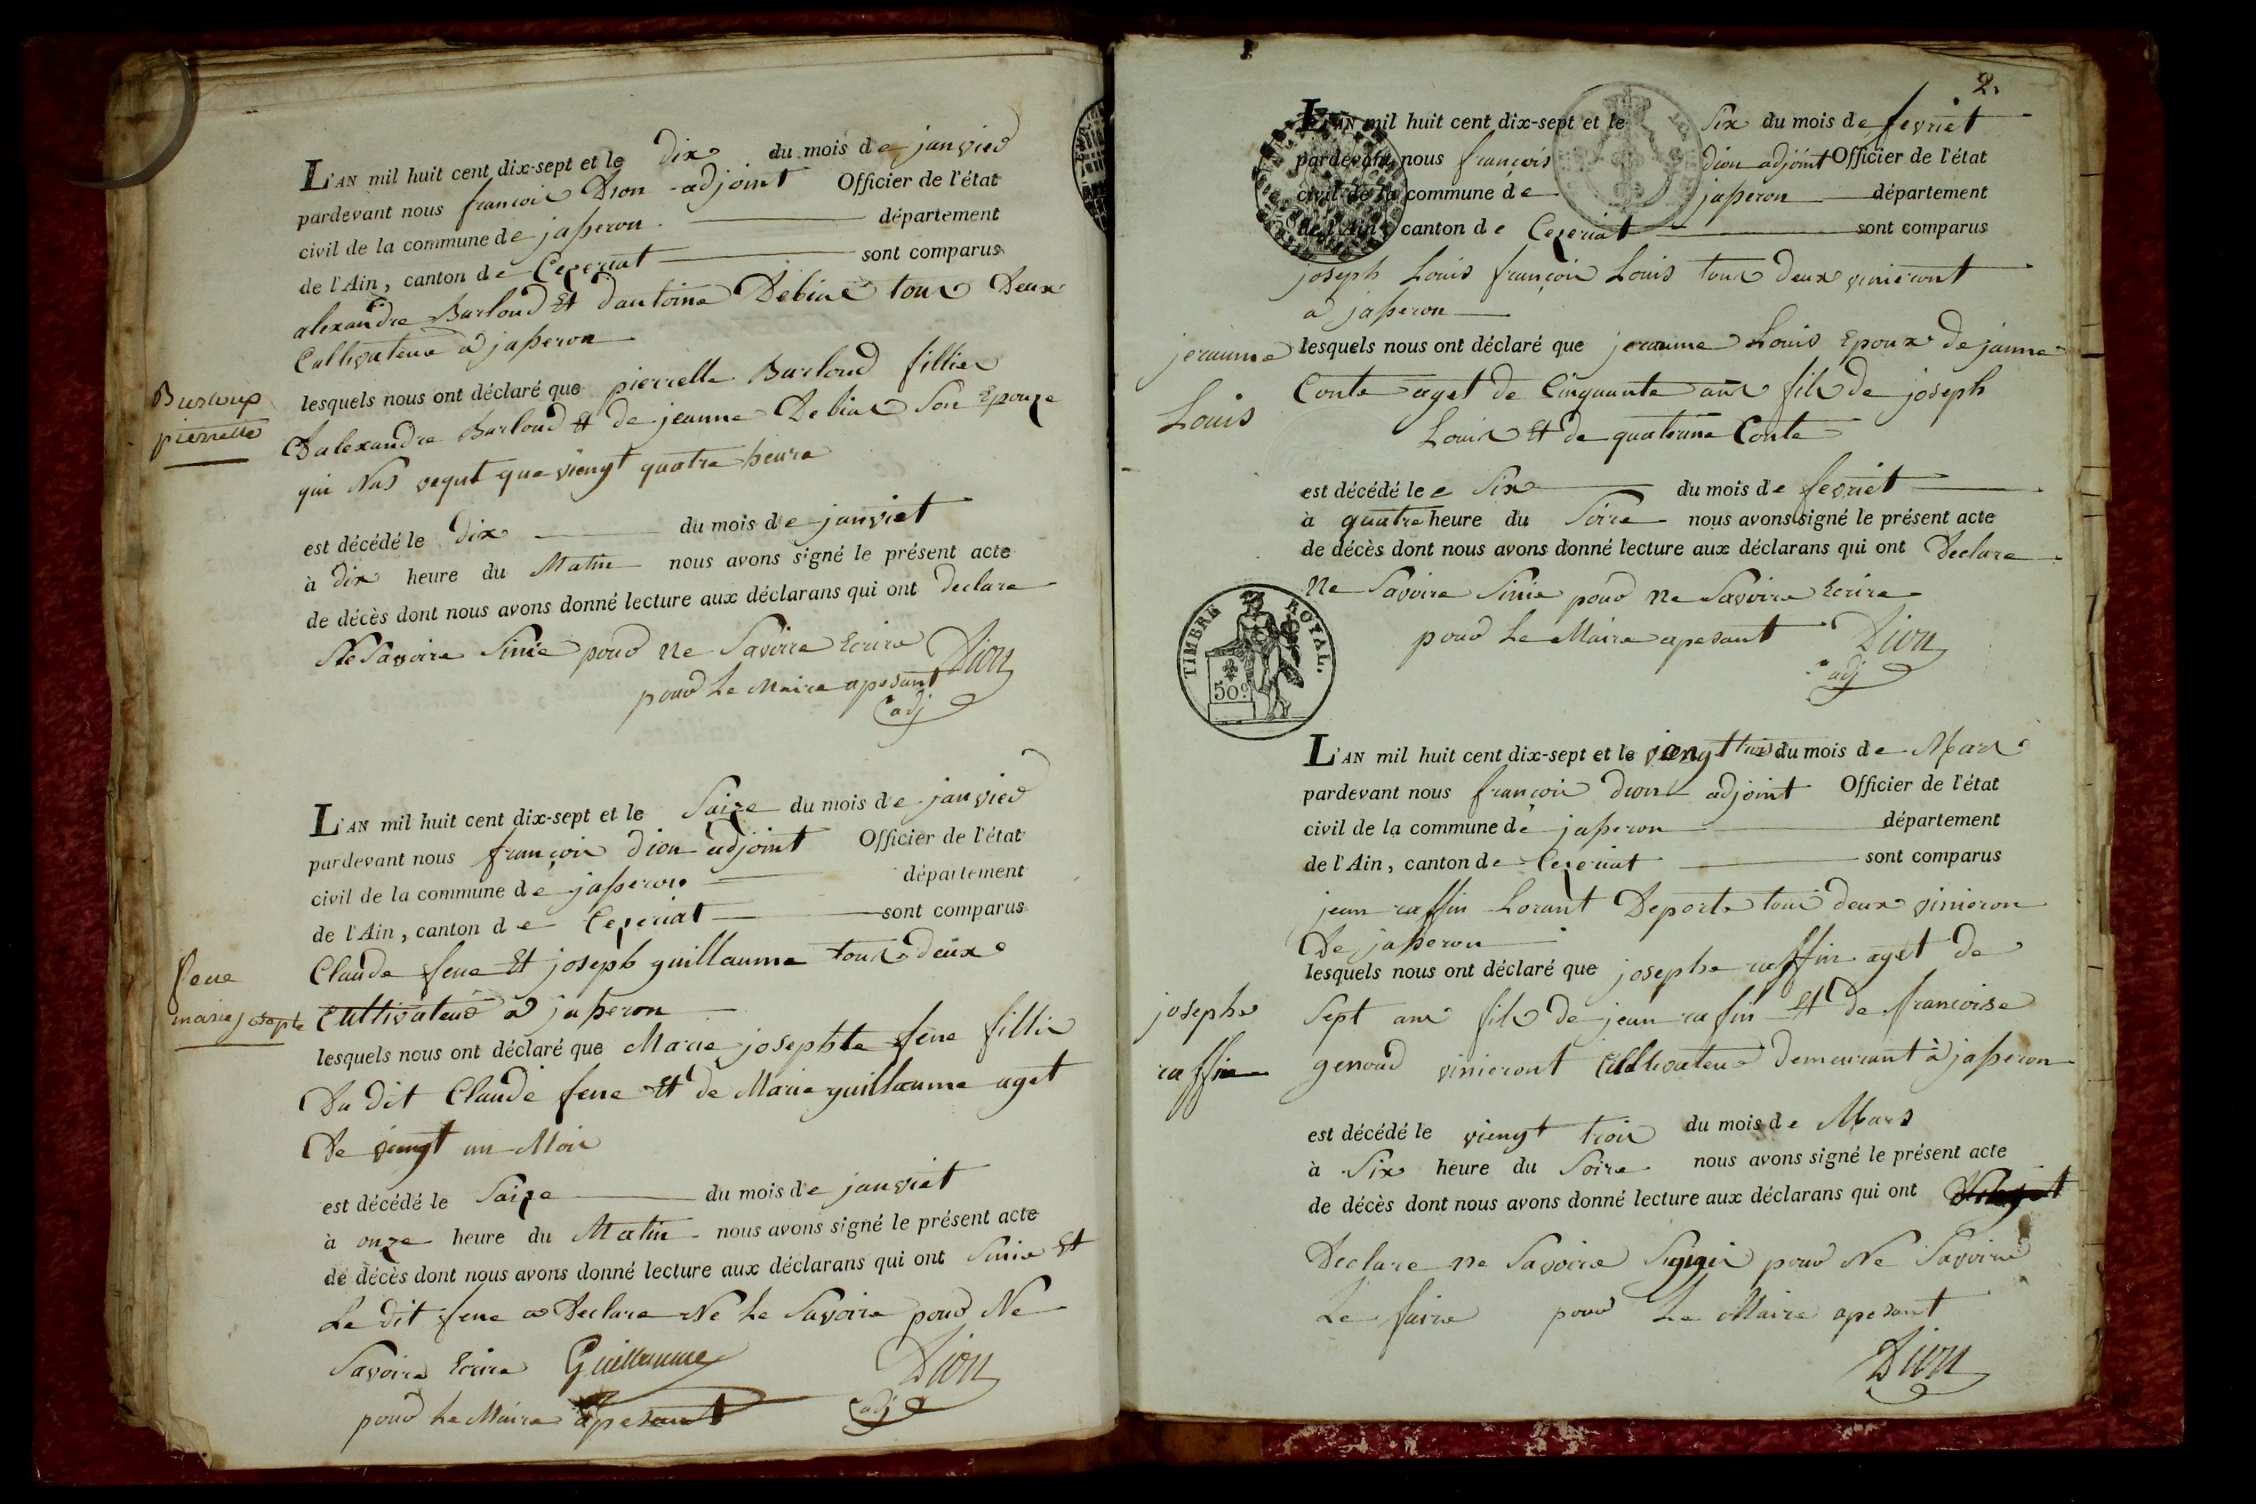 L'AN mil huit cent dix-sept et le dix du mois de janvier
pardevant nous francois Dion adjoint Officier de l'état
civil de la commune de jasseron département
de l'Ain, canton de Cezeriat sont comparus
alexandre Burloud Et dantoine Debiat tous Deux
Cultivateur a jasseron
Burloup
pierrette
lesquels nous ont déclaré que pierrette Burloud fillies
D'alexandre Burloud Et de jeanne Debiat Son Epouze
qui Nas vequt que viengt quatre heure
est décédé le dix du mois de janviet
à dix heure du Matin nous avons signé le présent acte
de décès dont nous avons donné lecture aux déclarans qui ont declare
Ne Savoire Sinie pour ne Savoire Ecrire
pour Le Maire apesant Dion
adj
L'AN mil huit cent dix-sept et le Saize du mois de janvier
pardevant nous françois dion adjoint Officier de l'état
civil de la commune de jasseron département
de l'Ain, canton de Cezeriat sont comparus
Claude fene Et joseph guillaume tous deux
fene
marie josepte
Cultivateur a jasseron
lesquels nous ont déclaré que Marie josephte fene fillie
Du dit Claude fene Et de Marie guillaume aget
De viengt un Mois
est décédé le Saize du mois de janviet
à onze heure du Matin nous avons signé le présent acte
de décès dont nous avons donné lecture aux déclarans qui ont Sinie Et
Le dit fene a Declare Ne Le Savoire pour Ne
Savoire Ecrire Guillaume Dion
pour Le Maire apesant adj
2.
L'AN mil huit cent dix-sept et le Six du mois de fevriet
pardevant nous françois dion adjoint Officier de l'état
civil de la commune de jasseron département
de l'Ain, canton de Cezeriat sont comparus
joseph Louis françois Louis tous deux vinieront
a jasseron
jeraume
Louis
lesquels nous ont déclaré que jeraume Louis Epoux de janne
Conte aget de Cinquante ans fils de joseph
Louis Et de quaterine Conte
est décédé le Six du mois de fevriet
à quatre heure du Soire nous avons signé le présent acte
de décès dont nous avons donné lecture aux déclarans qui ont Declare
Ne Savoire Sinie pour Ne Savoire Ecrire
pour Le Maire apesant Dion
adj
TIMBRE ROYAL.
50c
L'AN mil huit cent dix-sept et le viengt trois du mois de Mars
pardevant nous francois dion adjoint Officier de l'état
civil de la commune de jasseron département
de l'Ain, canton de Cezeriat sont comparus
jean raffin Lorant Deporte tous deux vinieron
De jasseron
lesquels nous ont déclaré que josephe raffin aget de
josephe
raffin
Sept ans fils de jean rafin Et de francoise
genoud vinieront Cultivateur demeurant à jasseron
est décédé le viengt trois du mois de Mars
à Six heure du Soire nous avons signé le présent acte
de décès dont nous avons donné lecture aux déclarans qui ont
Declare ne Savoire Signie pour Ne Savoire
Le faire pour Le Maire apesant
Dion